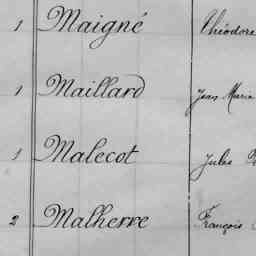 1 Maigné Théodore
1 Maillard Jean Marie
1 Malecot Jules
2 Malherre François